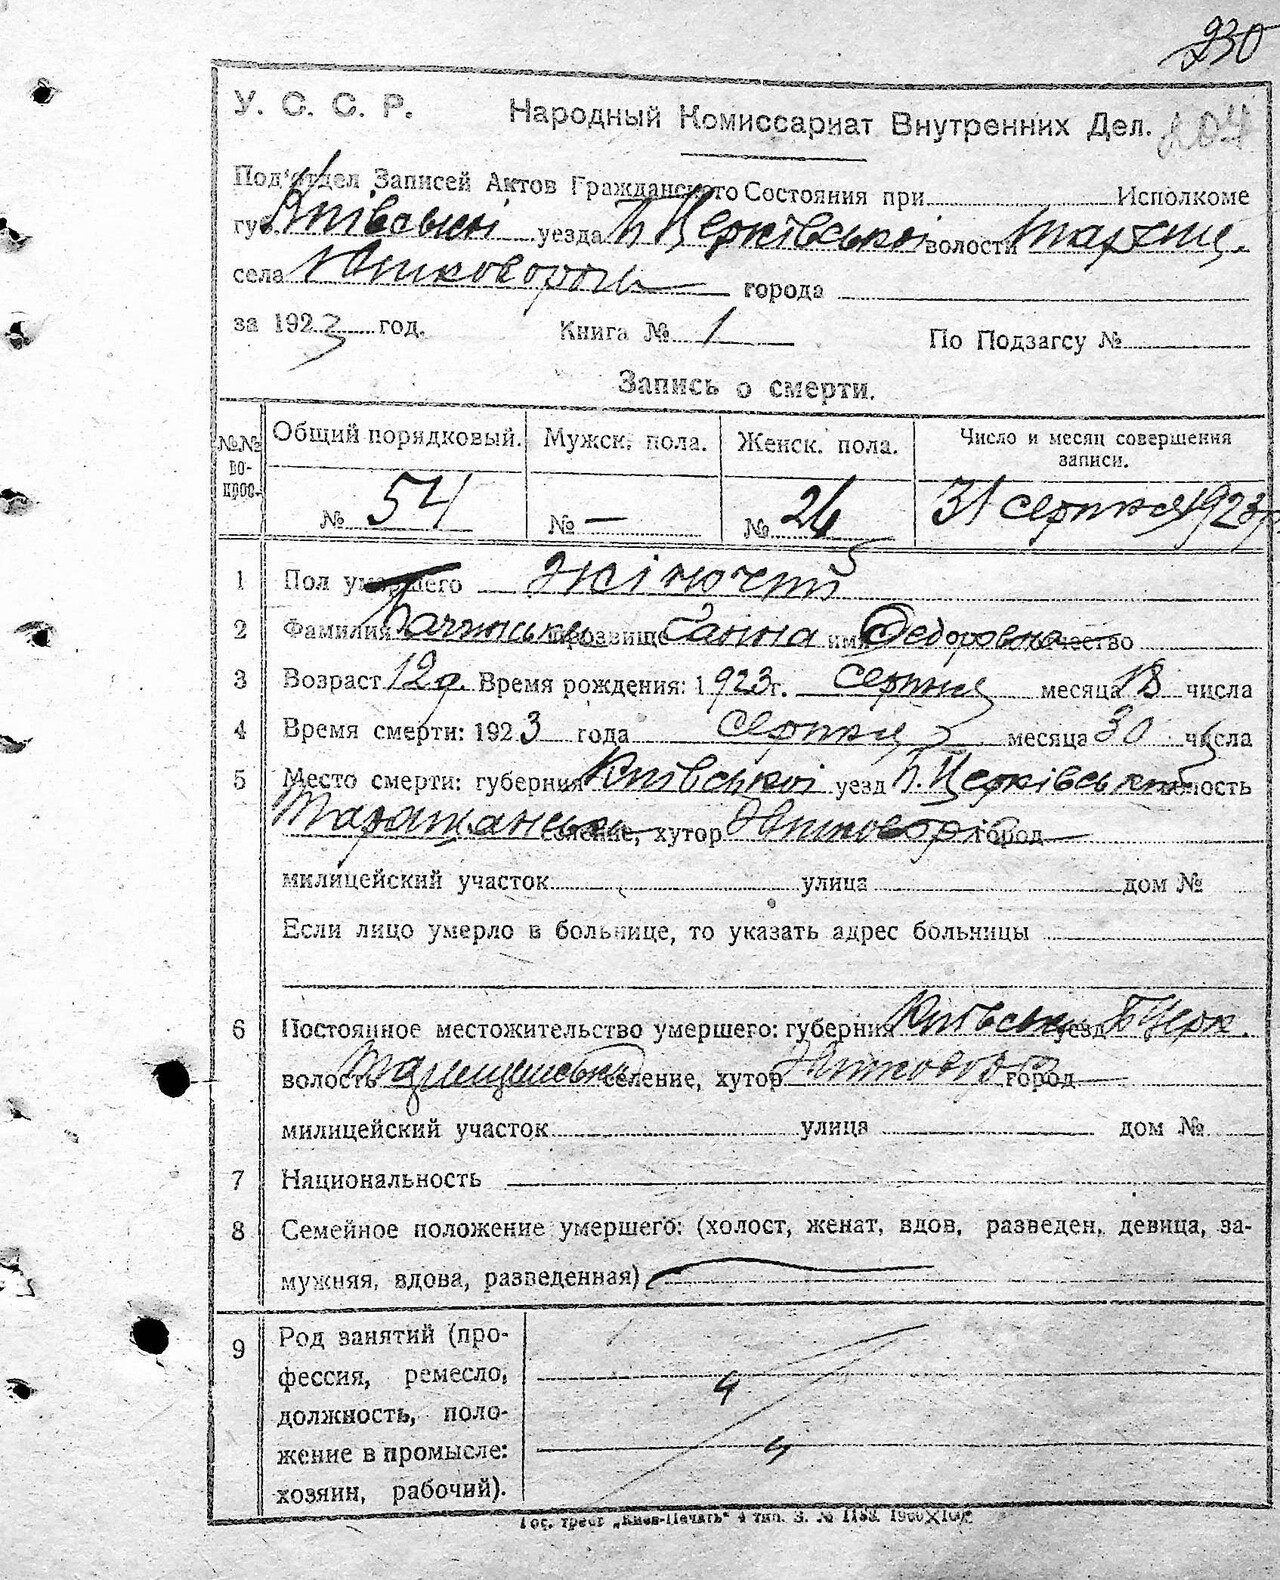 230
У. С. С. Р. Народный Комиссариат Внутренних Дел. 204
Под'отдел Записей Актов Гражданского Состояния при Исполкоме
губ. Київської уезда Б Церківської волости Таращ.
села города
за 1923 год. Книга № 1 По Подзагсу №
Запись о смерти.
№№ вопрос. Общий порядковый. Мужск. пола. Женск. пола. Число и месяц совершения записи.
№ 54 № — № 26 31 серпня 1923 р
1 Пол умершего жіночий
2 Фамилия прозвище Ганна имя Федоровна отчество
3 Возраст 12 д. Время рождения: 1923 г. серпня месяца 18 числа
4 Время смерти: 1923 года серпня месяца 30 числа
5 Место смерти: губерния Київської уезд Б. Церківської волость
Таращанська селение, хутор город
милицейский участок улица дом №
Если лицо умерло в больнице, то указать адрес больницы
6 Постоянное местожительство умершего: губерния Київська уезд Б Церк.
волость селение, хутор город
милицейский участок улица дом №
7 Национальность
8 Семейное положение умершего: (холост, женат, вдов, разведен, девица, за-
мужняя, вдова, разведенная)
9 Род занятий (про-
фессия, ремесло,
должность, поло-
жение в промысле:
хозяин, рабочий).
Гос. трест „Киев-Печать" 4 тип. З. №